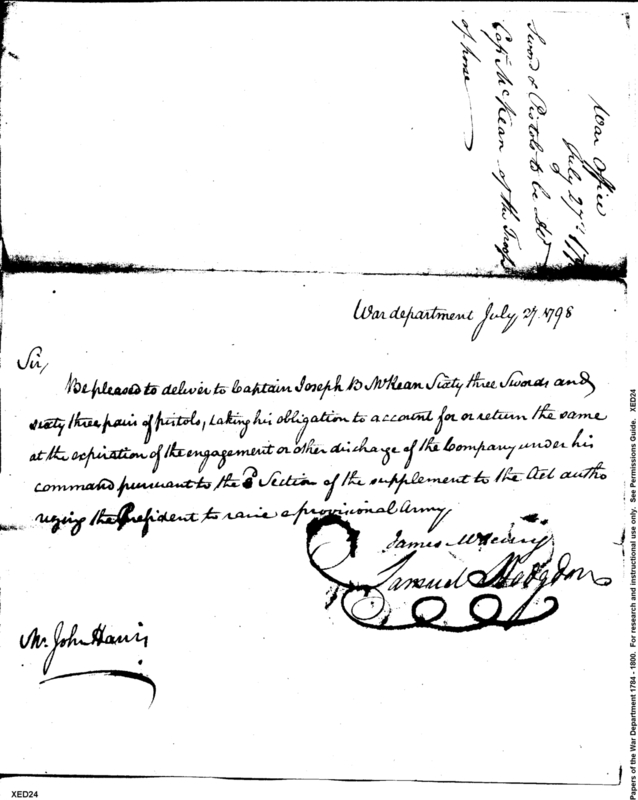 War Office
of
July 27th 179
Sword & Pistols to be dd
Capt McKean of the Troops
of horse
War department July 27. 1798
Sir,
Be pleased to deliver to Captain Joseph B McKean Sixty three Swords and
sixty three pairs of pistols, taking his obligation to account for or return the same
at the expiration of the engagement or other discharge of the Company under his
command pursuant to the Section of the supplement to the Act autho
rizing the President to raise a provisional Army
James McHenry
Samuel Hodgdon
Mr John Harris
XED24
Papers of the War Department 1784 - 1800. For research and instructional use only. See Permissions Guide. XED24